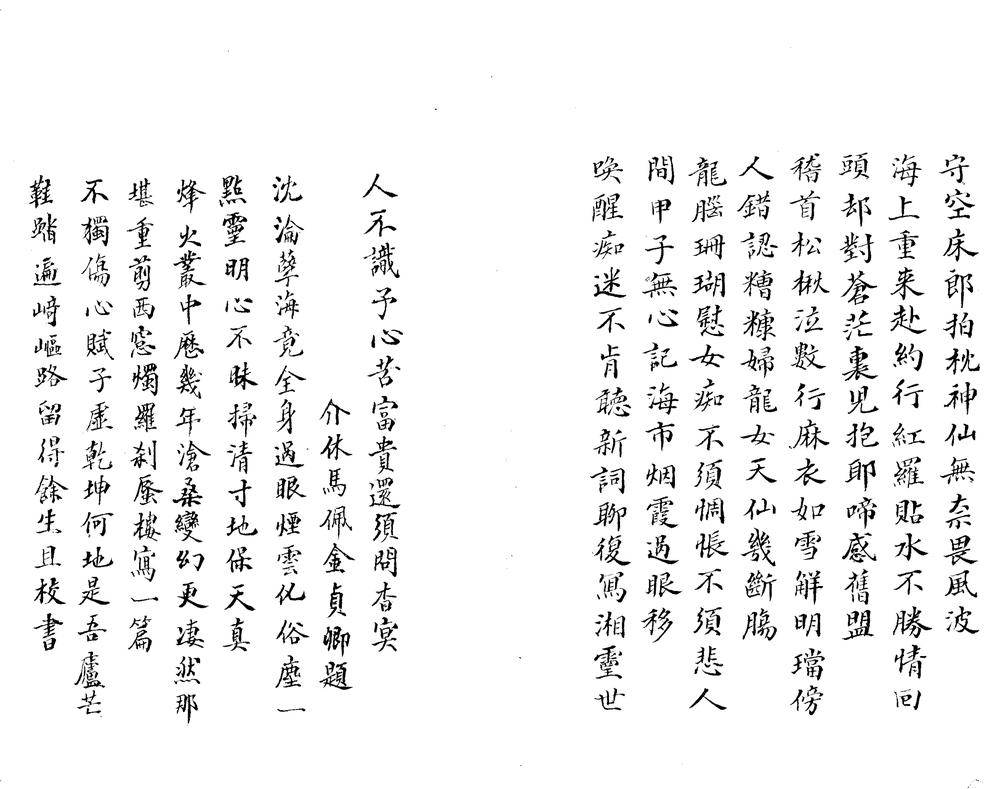 守空床郎拍枕神仙無奈畏風波
海上重来赴約行紅羅貼水不勝情回
頭却對蒼茫裏児抱耶啼感舊盟
稽首松楸泣數行麻衣如雪解明璫傍
人錯認糟糠婦龍女天仙幾斷腸
龍腦珊瑚慰女痴不須惆悵不須悲人
間甲子無心記海市烟霞過眼移
喚醒痴迷不肯聽新詞聊復寫湘靈世
人不識予心苦富貴還須問杳冥
介休馬佩金貞卿題
沈淪孽海竟全身過眼煙雲化俗塵一
點靈明心不昧掃清寸地保天真
烽火叢中歷幾年滄桑變幻更淒然那
堪重剪西窓燭羅刹蜃樓寫一篇
不獨傷心賦子虛乾坤何地是吾廬芒
鞋踏遍崎嶇路留得餘生且校書